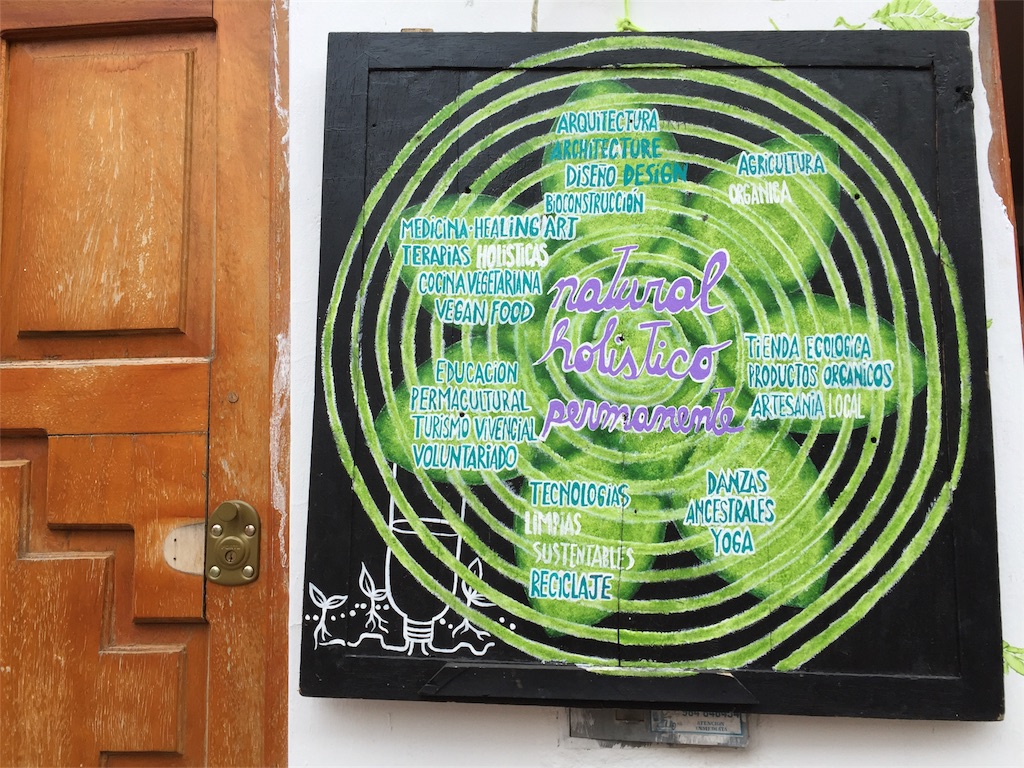 ARQUITECTURA
ARCHITECTURE
DISEÑO DESIGN
BIOCONSTRUCCIÓN
AGRICULTURA
ORGANICA
MEDICINA-HEALING ART
TERAPIAS HOLISTICAS
COCINA VEGETARIANA
VEGAN FOOD
natural
holistico
permanente
TIENDA ECOLOGICA
PRODUCTOS ORGANICOS
ARTESANIA LOCAL
EDUCACION
PERMACULTURAL
TURISMO VIVENCIAL
VOLUNTARIADO
TECNOLOGIAS
LIMPIAS
SUSTENTABLES
RECICLAJE
DANZAS
ANCESTRALES
YOGA
ATENCION
INMEDIATA